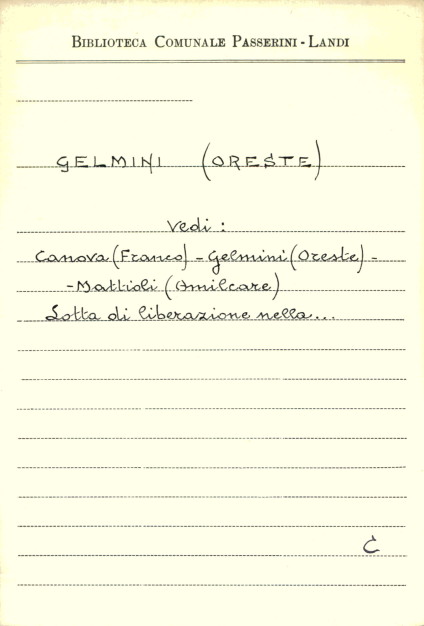 BIBLIOTECA COMUNALE PASSERINI - LANDI
GELMINI (ORESTE)
Vedi :
Canova (Franco) - Gelmini (Oreste) -
- Mattioli (Amilcare)
Lotta di liberazione nella...
C